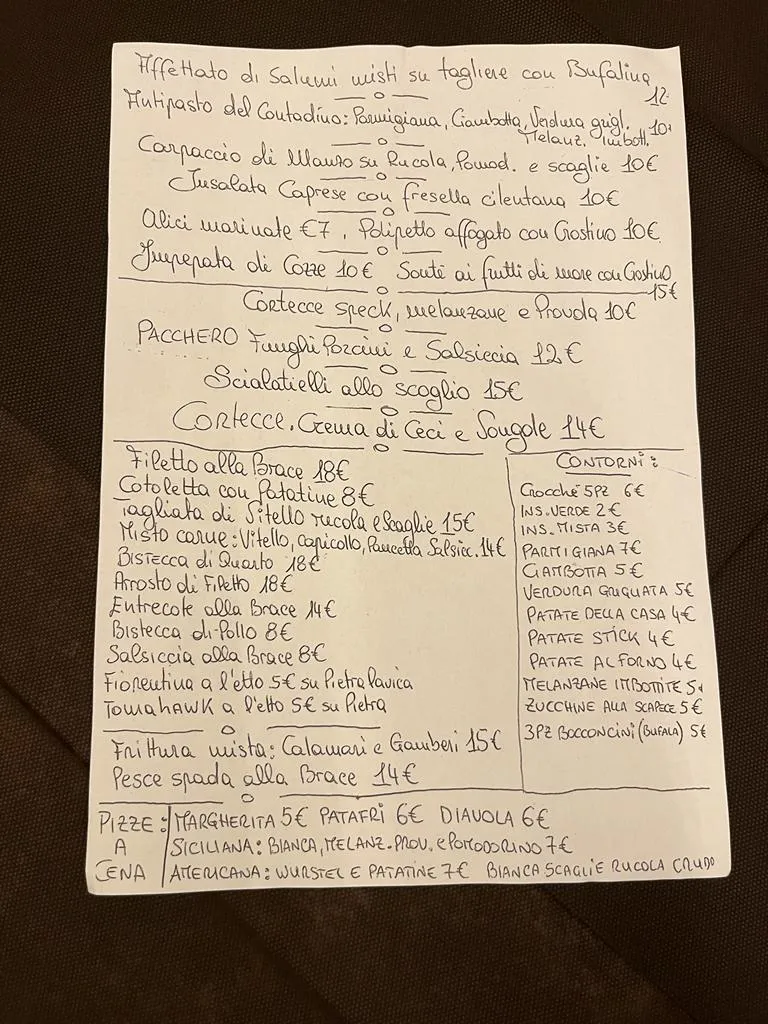 Affettato di Salumi misti su tagliere con Bufalina
12
Antipasto del Contadino: Parmigiana, Ciambotta, Verdura grigl. 10€
Melanz. imbott.
Carpaccio di Manzo su Rucola, Pomod. e scaglie 10€
Insalata Caprese con fresella cilentana 10€
Alici marinate €7, Polipetto affogato con Crostino 10€
Impepata di Cozze 10€ Sautè ai frutti di mare con Crostino
15€
Cortecce speck, melanzane e Provola 10€
PACCHERO Funghi Porcini e Salsiccia 12€
Scialatielli allo scoglio 15€
Cortecce. Crema di Ceci e Vongole 14€
Filetto alla Brace 18€
Cotoletta con Patatine 8€
Tagliata di Vitello rucola e Scaglie 15€
Misto carne: Vitello, capicollo, Pancetta Salsicc. 14€
Bistecca di Quarto 18€
Arrosto di Filetto 18€
Entrecote alla Brace 14€
Bistecca di Pollo 8€
Salsiccia alla Brace 8€
Fiorentina a l'etto 5€ su Pietra lavica
TomaHAWK a l'etto 5€ su Pietra
Frittura mista: Calamari e Gamberi 15€
Pesce spada alla Brace 14€
CONTORNI:
Crocchè 5PZ 6€
INS. VERDE 2€
INS. MISTA 3€
PARMIGIANA 7€
CIAMBOTTA 5€
VERDURA GRIGLIATA 5€
PATATE DELLA CASA 4€
PATATE STICK 4€
PATATE AL FORNO 4€
MELANZANE IMBOTTITE 5€
ZUCCHINE ALLA SCAPECE 5€
3PZ BOCCONCINI (BUFALA) 5€
PIZZE: MARGHERITA 5€ PATAFRÌ 6€ DIAVOLA 6€
A SICILIANA: BIANCA, MELANZ. PROV. e POMODORINO 7€
CENA AMERICANA: WURSTEL E PATATINE 7€ BIANCA SCAGLIE RUCOLA CRUDO